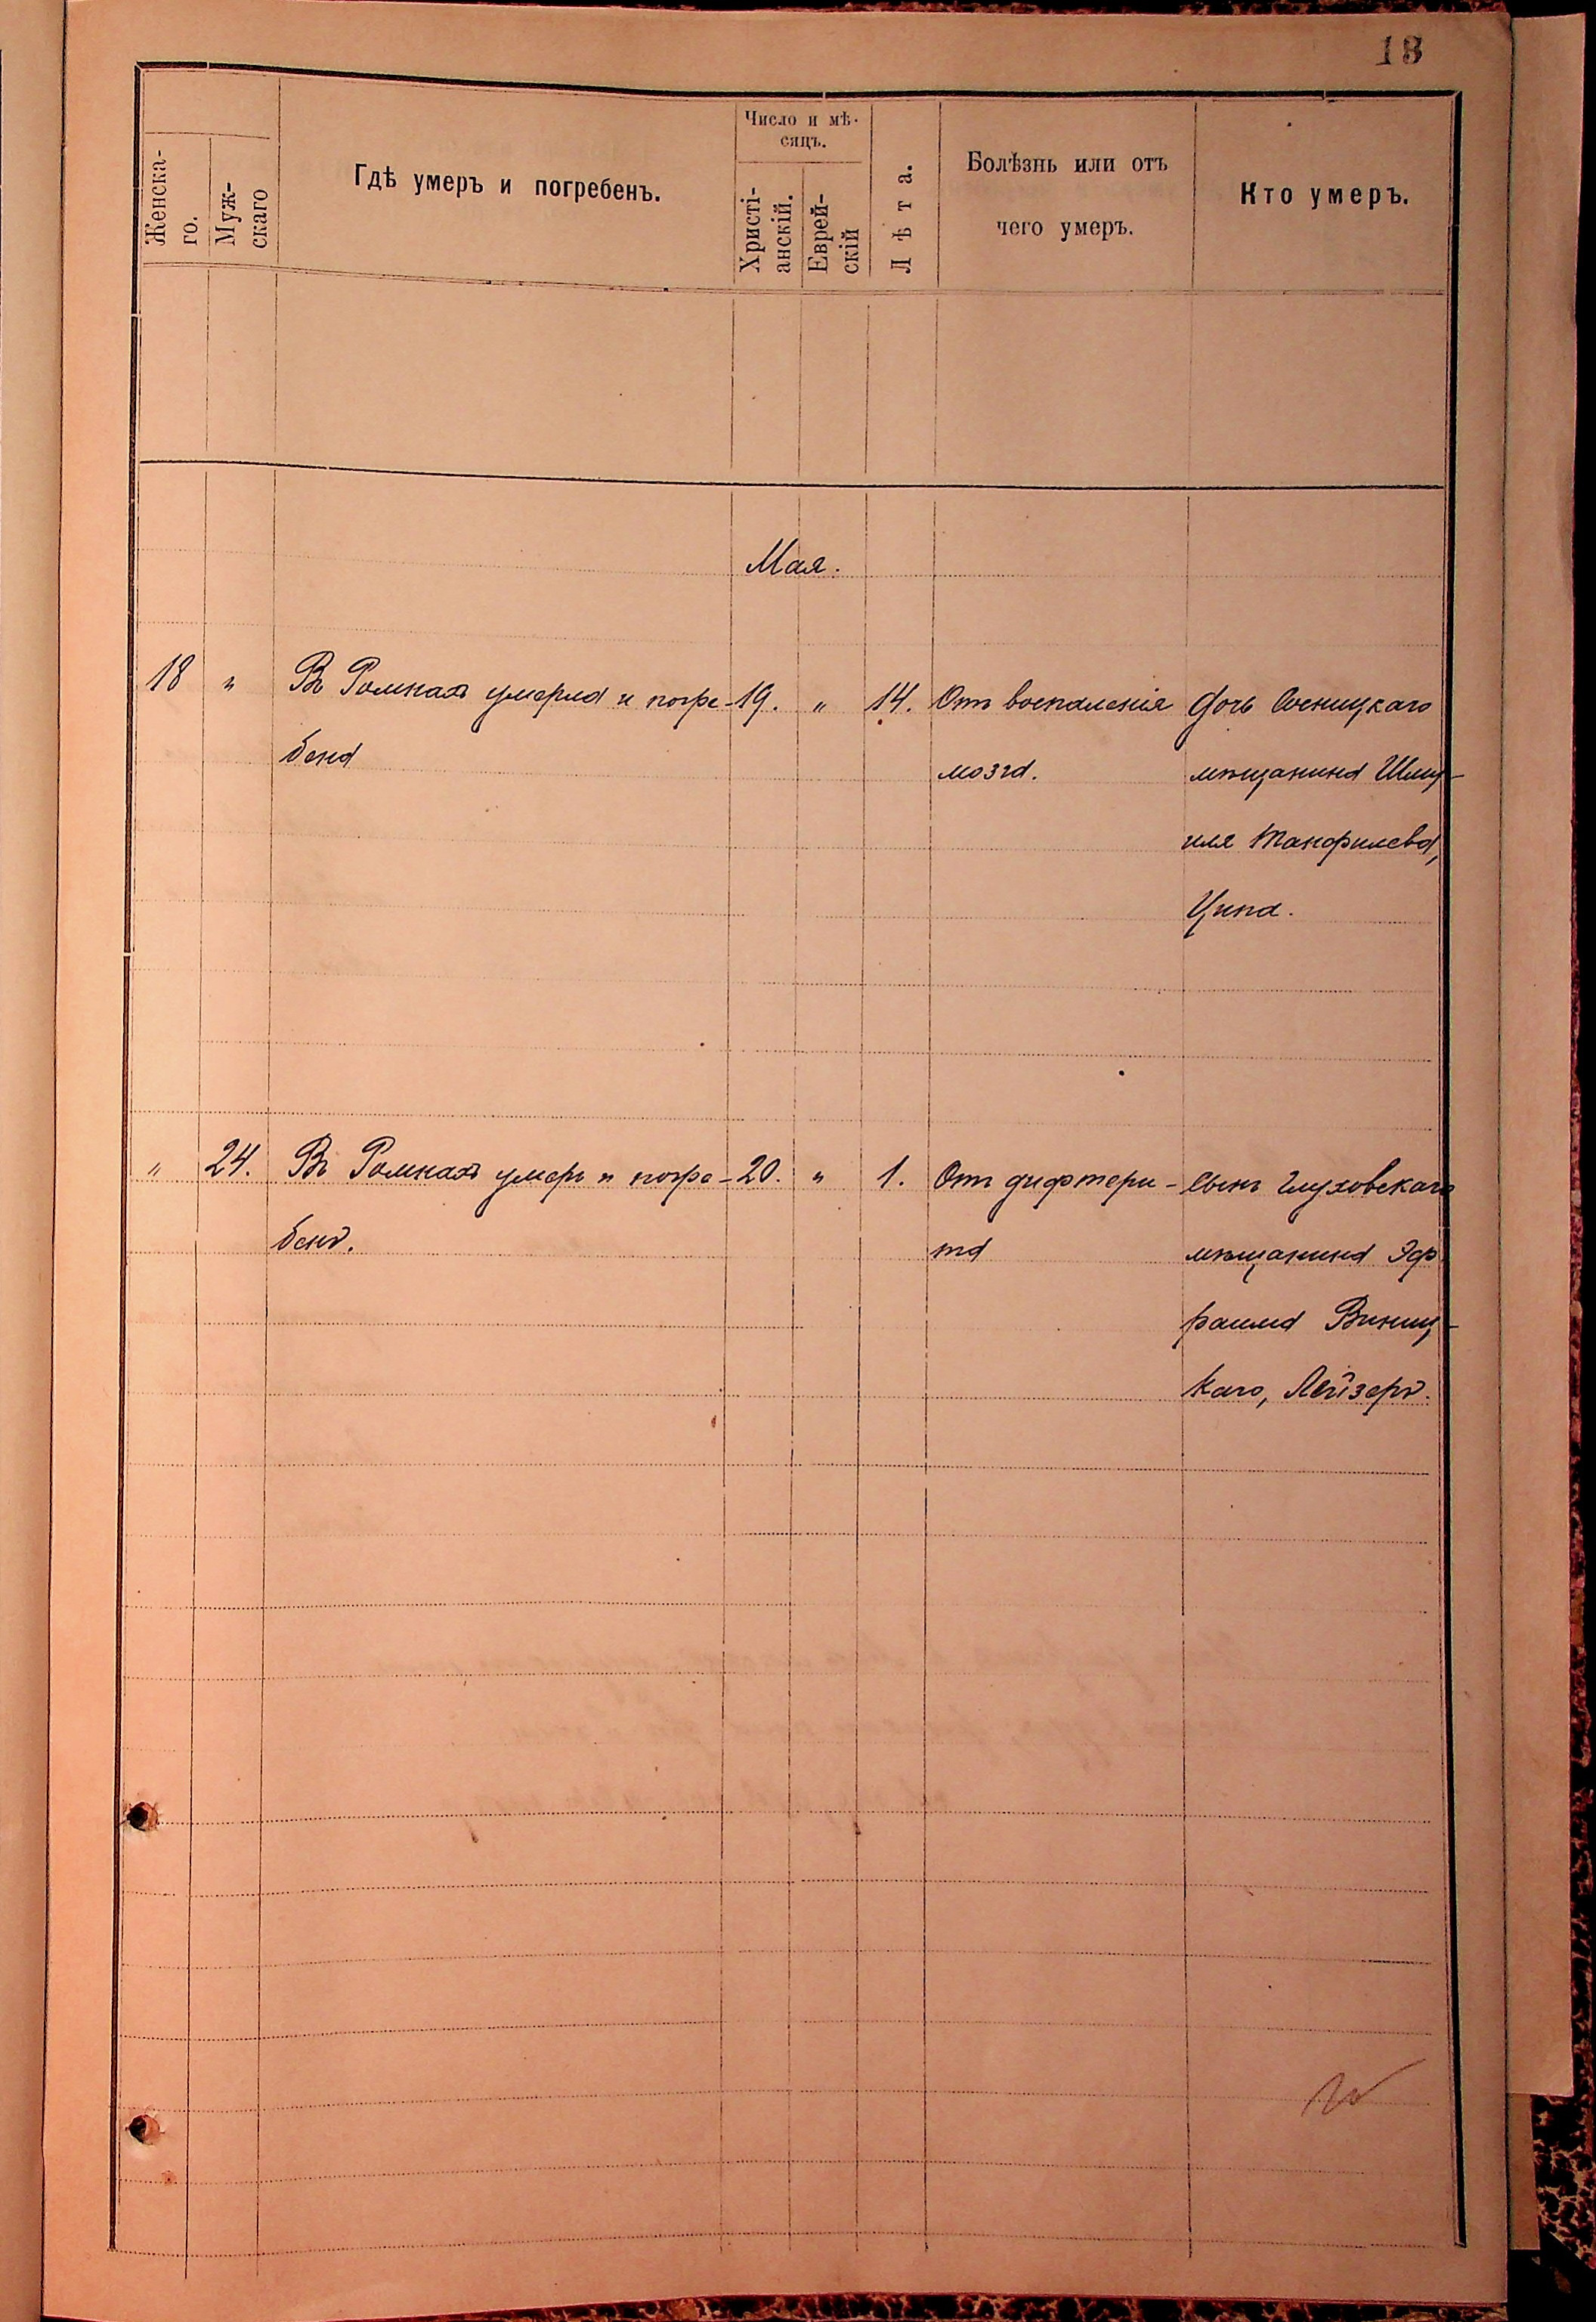 18
Женска-
го.
Муж-
скаго
Гдѣ умеръ и погребенъ.
Число и мѣ-
сяцъ.
Христі-
анскій.
Еврей-
скій
Лѣта.
Болѣзнь или отъ
чего умеръ.
Кто умеръ.
Мая.
18 " Въ Ромнахъ умерла и погре- 19. " 14. Отъ воспаленія дочь Сосницкаго
бена мозга. мѣщанина Шму-
иля Танфилева,
Ципа.
" 24. Въ Ромнахъ умеръ и погре- 20. " 1. Отъ дифтери- сынъ Глуховскаго
бенъ. та мѣщанина Эф
раима Виниц-
каго, Лейзеръ.